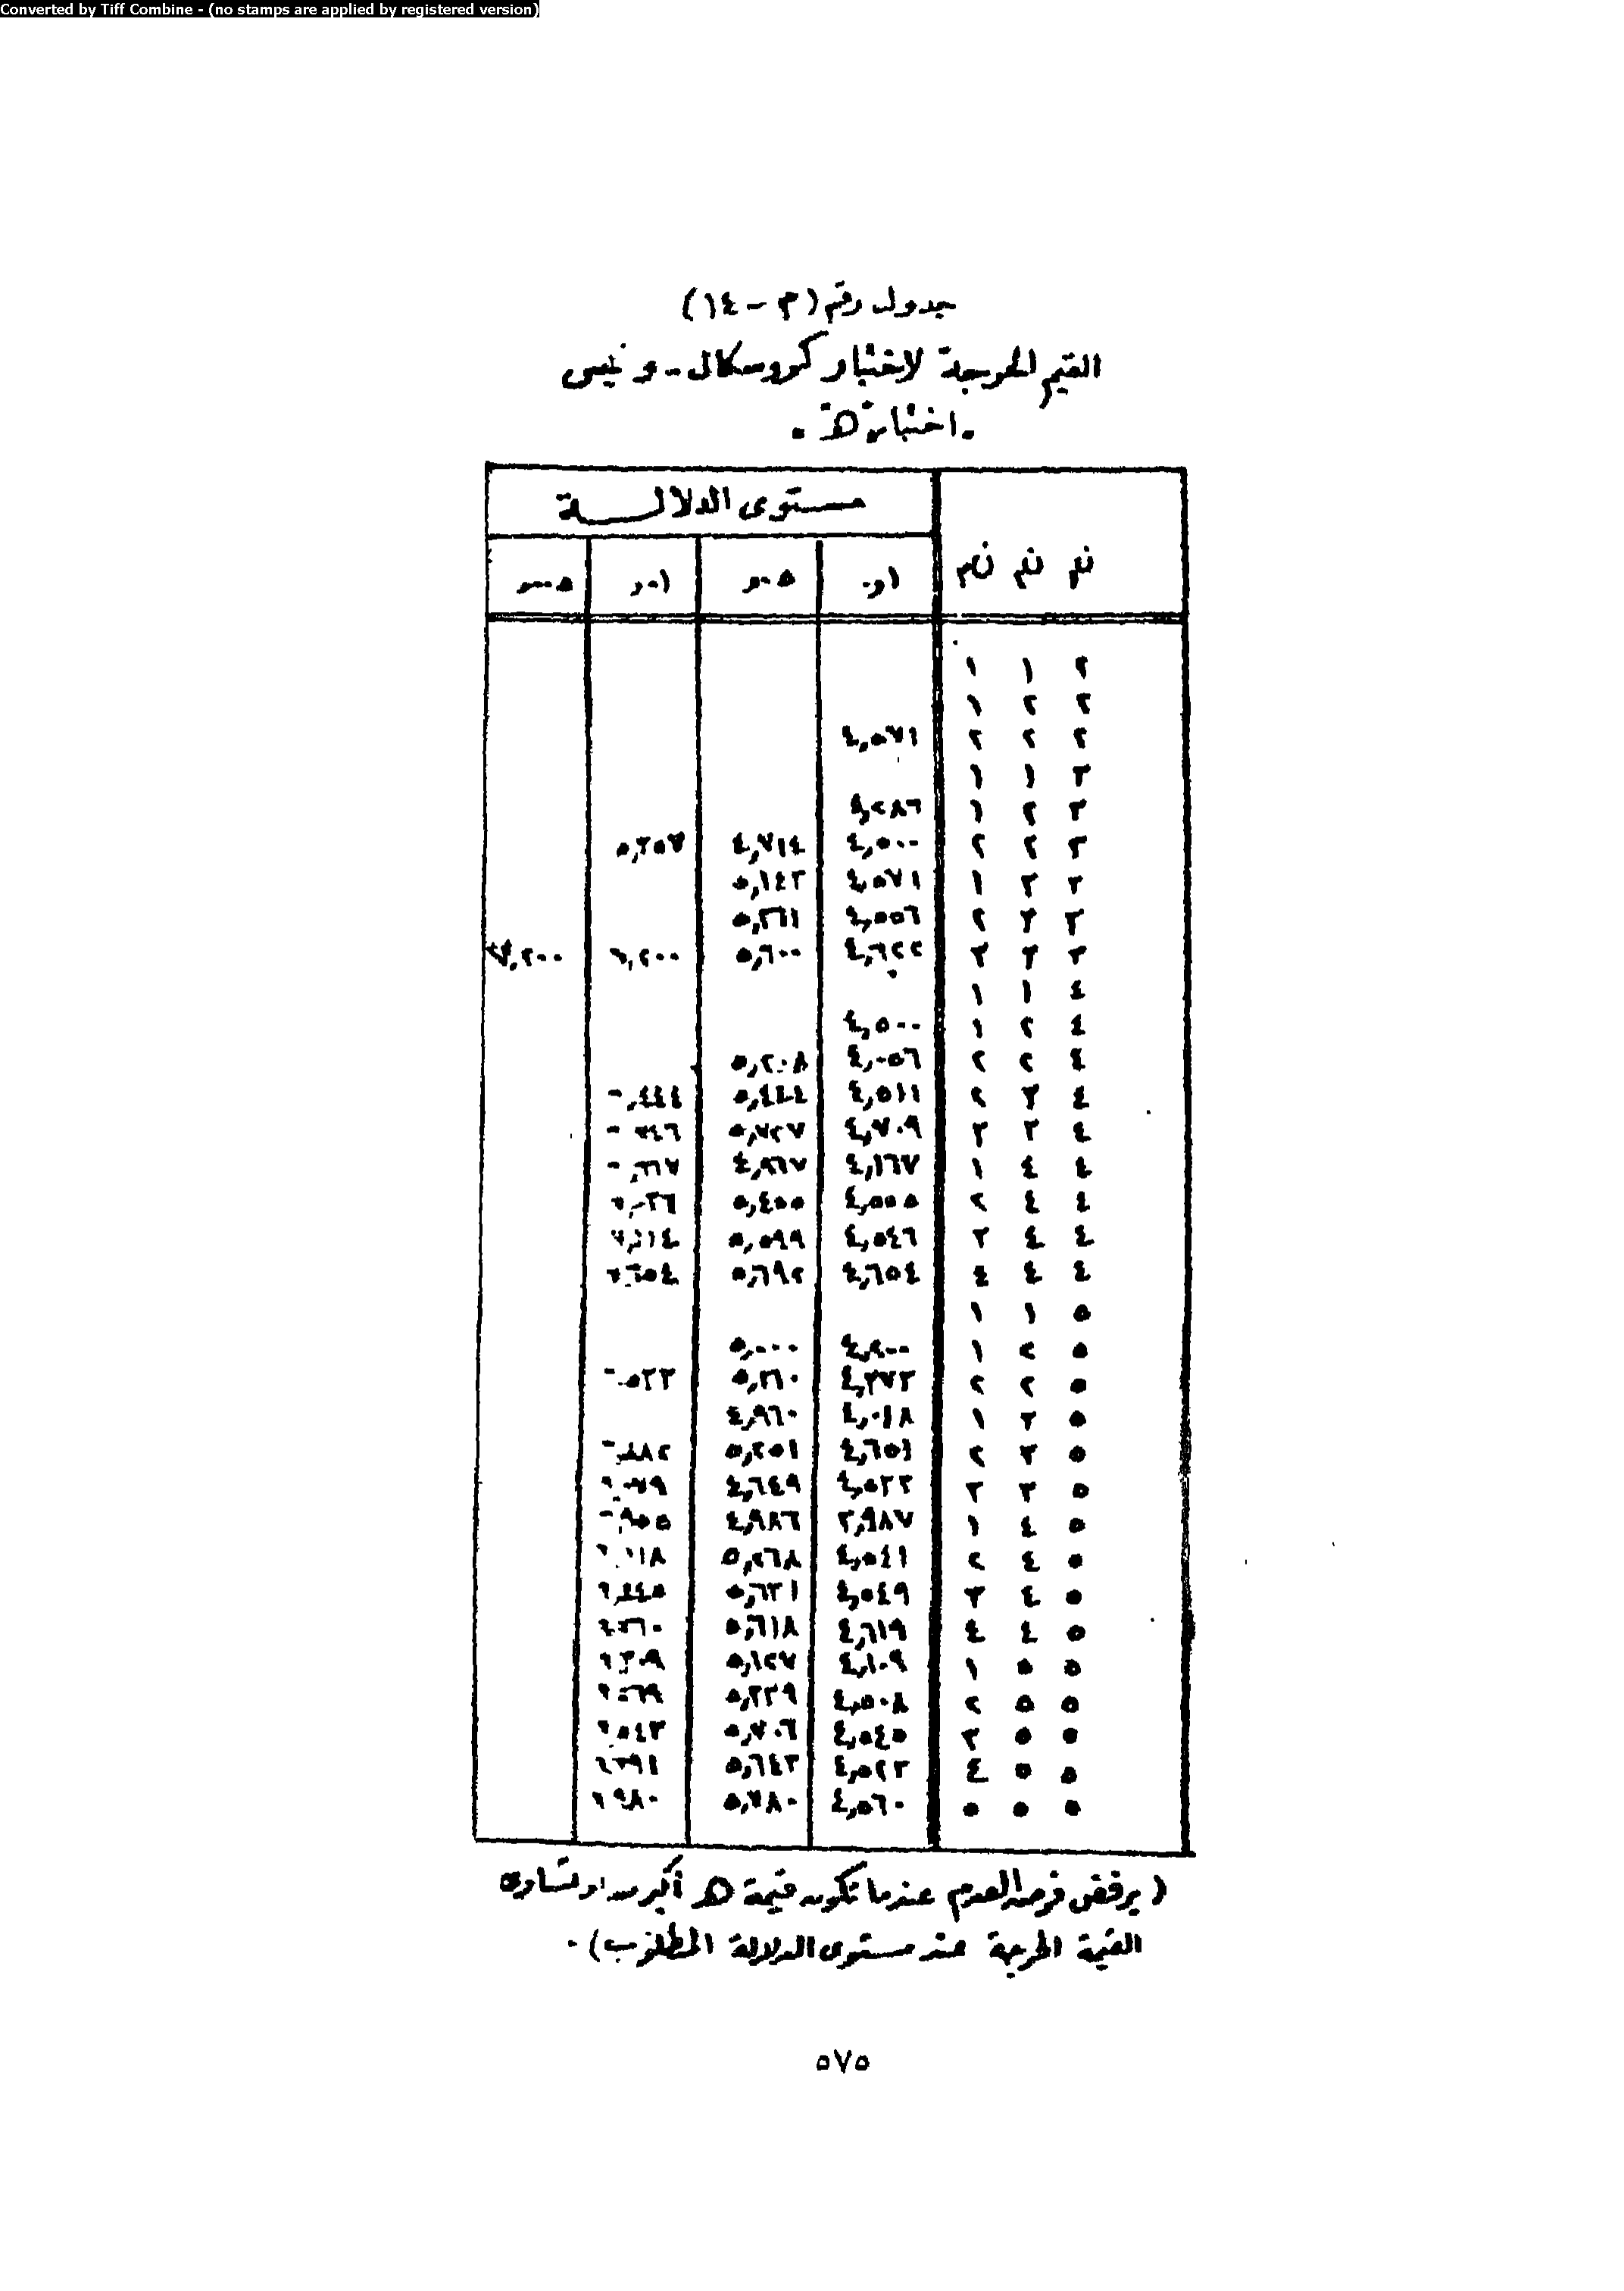 Converted by Tiff Combine - (no stamps are applied by registered version)
جدول رقم (م - ١٤)
القيم الحرجة لاختبار كروسكال - و
اختبار هـ .
مستوى الدلالــــة
١و. ٥٠و ٠١و
٢ ١ ١
٢ ٢ ١
٢ ٢ ٢ ٤,٥٧١
٣ ١ ١
٣ ٢ ١ ٤,٢٨٦
٣ ٢ ٢ ٤,٥٠٠ ٤,٧١٤ ٥,٣٥٧
٣ ٣ ١ ٤,٥٧١ ٥,١٤٣
٣ ٣ ٢ ٤,٥٥٦ ٥,٣٦١
٣ ٣ ٣ ٤,٦٢٢ ٥,٦٠٠ ٦,٢٠٠ ٧,٢٠٠
٤ ١ ١
٤ ٢ ١ ٤,٥٠٠
٤ ٢ ٢ ٤,٠٥٦ ٥,٢٠٨
٤ ٣ ٢ ٤,٥١١ ٥,٤٤٤
٤ ٣ ٣ ٤,٧٠٩ ٥,٧٢٧
٤ ٤ ١ ٤,١٦٧ ٤,٨٦٧
٤ ٤ ٢ ٤,٥٥٥ ٥,٤٥٥
٤ ٤ ٣ ٤,٥٤٦ ٥,٥٩٩
٤ ٤ ٤ ٤,٦٥٤ ٥,٦٩٢
٥ ١ ١
٥ ٢ ١ ٤,٢٠٠ ٥,٠٠٠
٥ ٢ ٢ ٤,٣٧٣ ٥,١٦٠
٥ ٣ ١ ٤,٠١٨ ٤,٩٦٠
٥ ٣ ٢ ٤,٦٥١ ٥,٢٥١
٥ ٣ ٣ ٤,٥٣٣ ٤,٦٤٩
٥ ٤ ١ ٣,٩٨٧ ٤,٩٨٦
٥ ٤ ٢ ٤,٥٤١ ٥,٢٦٨
٥ ٤ ٣ ٤,٥٤٩ ٥,٦٣١
٥ ٤ ٤ ٤,٦١٩ ٥,٦١٨
٥ ٥ ١ ٤,١٠٩ ٥,١٢٧
٥ ٥ ٢ ٤,٥٠٨ ٥,٣٣٩
٥ ٥ ٣ ٤,٥٤٥ ٥,٧٠٦
٥ ٥ ٤ ٤,٥٢٣ ٥,٦٤٣
٥ ٥ ٥ ٤,٥٦٠ ٥,٧٨٠
( يرفض فرض العدم عندما تكون قيمة هـ أكبر من او تساوى
القيمة الحرجة عند مستوى الدلالة المطلوب ) .
٥٧٥